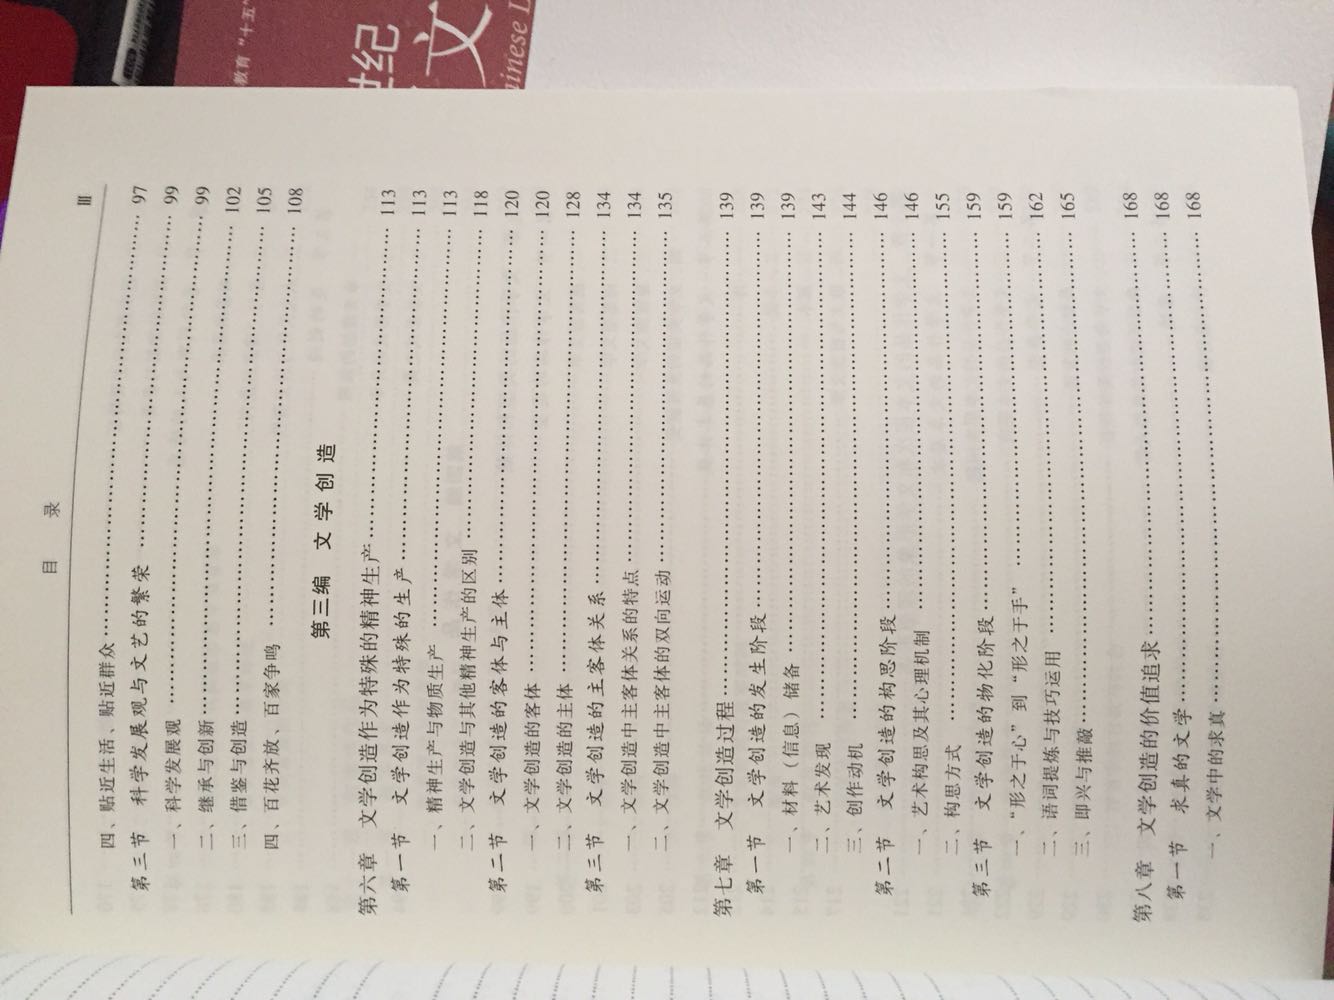 目 录 Ⅲ
四、贴近生活、贴近群众 …… 97
第三节 科学发展观与文艺的繁荣 …… 99
一、科学发展观 …… 99
二、继承与创新 …… 102
三、借鉴与创造 …… 105
四、百花齐放、百家争鸣 …… 108
第三编 文学创造
第六章 文学创造作为特殊的精神生产 …… 113
第一节 文学创造作为特殊的生产 …… 113
一、精神生产与物质生产 …… 113
二、文学创造与其他精神生产的区别 …… 118
第二节 文学创造的客体与主体 …… 120
一、文学创造的客体 …… 120
二、文学创造的主体 …… 128
第三节 文学创造的主客体关系 …… 134
一、文学创造中主客体关系的特点 …… 134
二、文学创造中主客体的双向运动 …… 135
第七章 文学创造过程 …… 139
第一节 文学创造的发生阶段 …… 139
一、材料（信息）储备 …… 139
二、艺术发现 …… 143
三、创作动机 …… 144
第二节 文学创造的构思阶段 …… 146
一、艺术构思及其心理机制 …… 146
二、构思方式 …… 155
第三节 文学创造的物化阶段 …… 159
一、“形之于心”到“形之于手” …… 159
二、语词提炼与技巧运用 …… 162
三、即兴与推敲 …… 165
第八章 文学创造的价值追求 …… 168
第一节 求真的文学 …… 168
一、文学中的求真 …… 168
教育“十五”
世纪
文